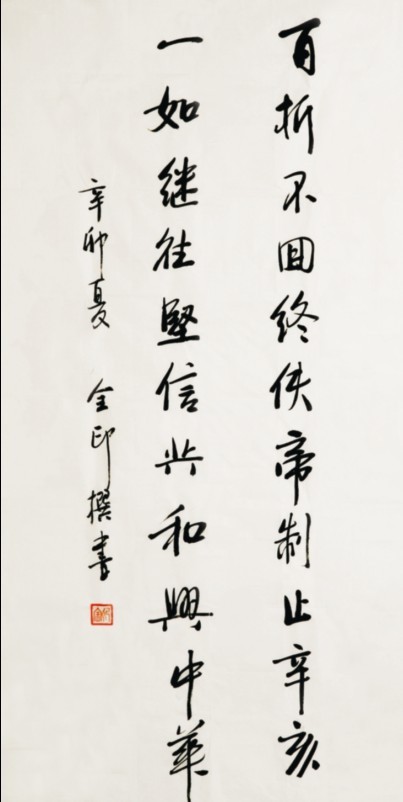 百折不回终使帝制止辛亥
一如继往坚信共和兴中华
辛卯夏 金印撰书